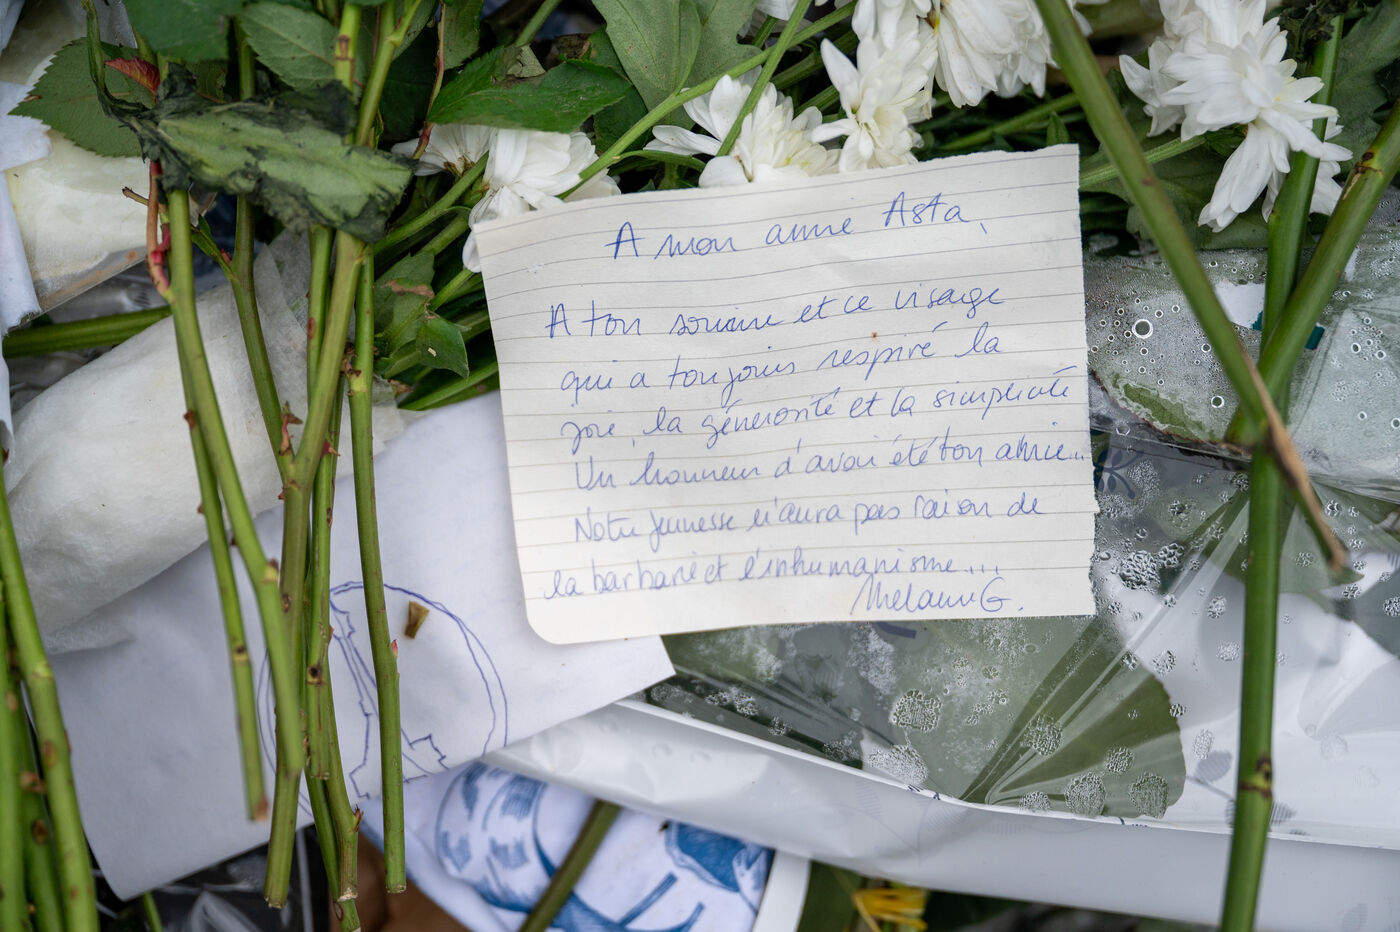 A mon amie Asta,
A ton sourire et ce visage
qui a toujours respiré la
joie, la générosité et la simplicité
Un honneur d'avoir été ton amie...
Notre jeunesse n'aura pas raison de
la barbarie et l'inhumanisme...
Melanie G.